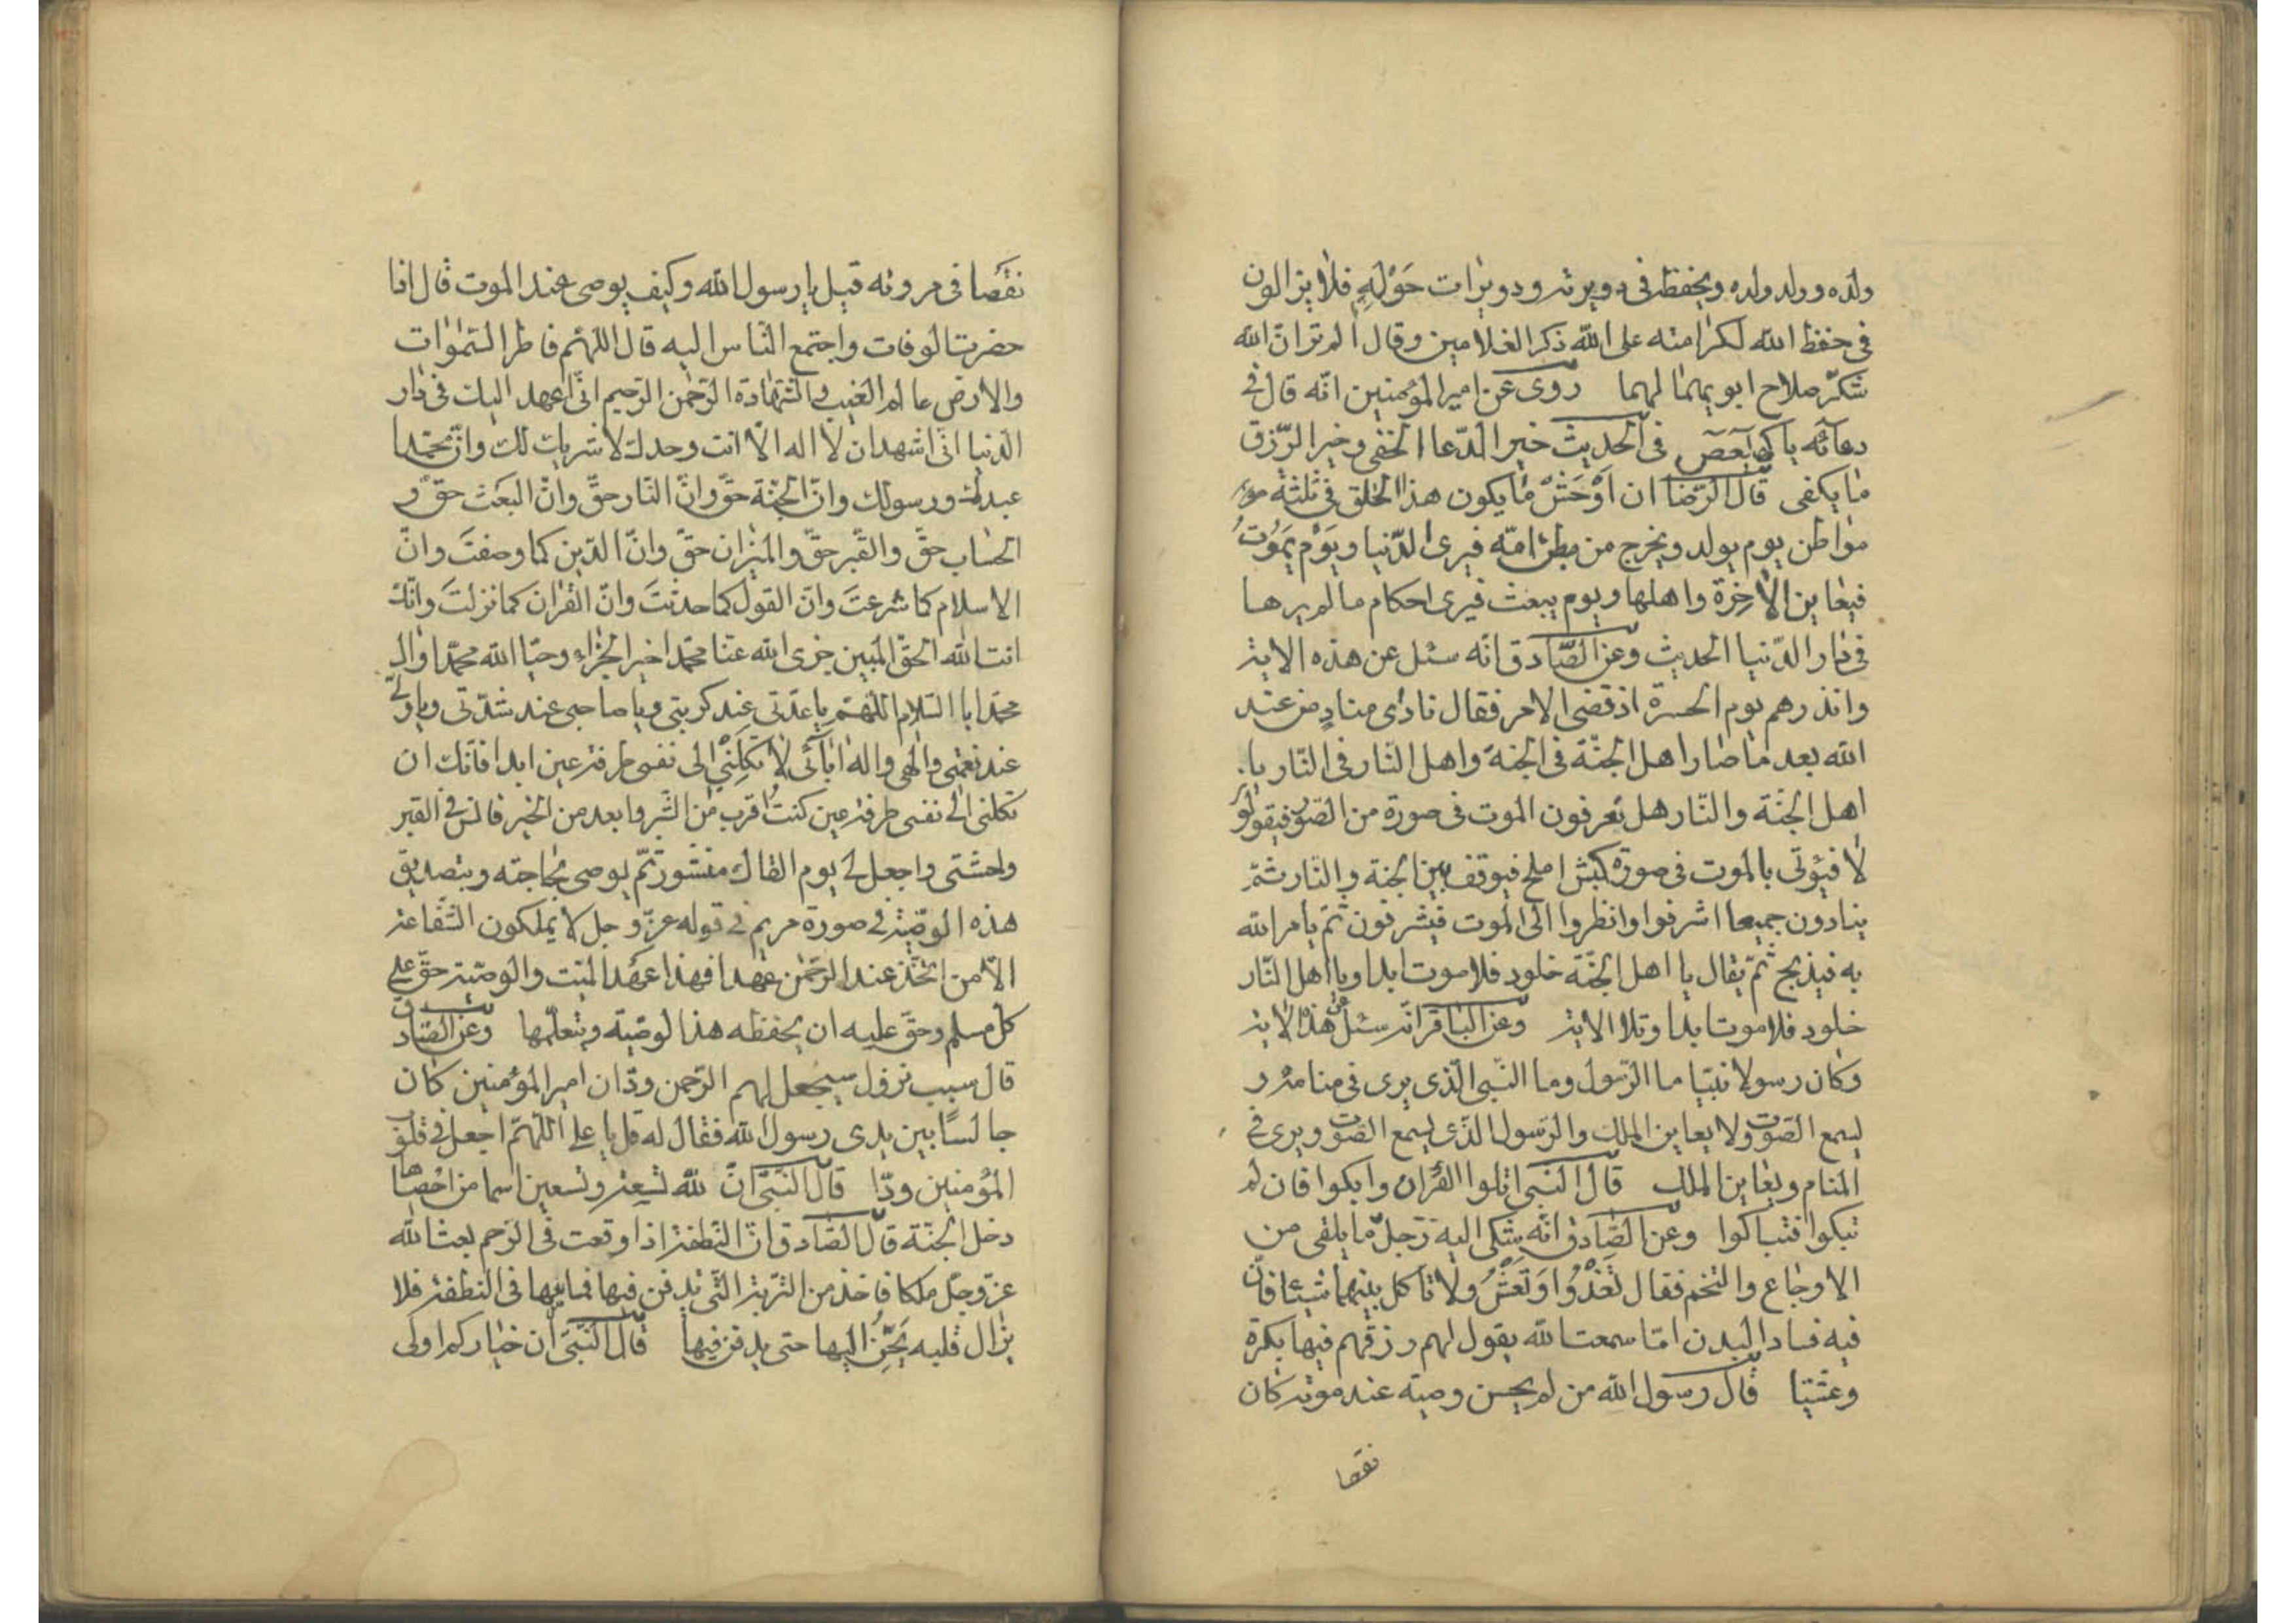 ولده وولد ولده ويحفظ فى دويرته ودويرات حَوْلَهِ فلا يزالون
فى حفظ الله لكرامته على الله ذكر الغلامين وقال الم تر انّ الله
شكّر صلاح ابويهما لهما روى عن امير المؤمنين انّه قال فى
دعائه يا كهيعص فى الحديث خير الدّعا الخفى وخير الرّزق
ما يكفى قال الرّضا ان اَوْحَشْ ما يكون هذا الخلق فى ثلثة
مواطن يوم يولد ويخرج من بطن امّه فيرى الدّنيا ويَوْم يَمَوُتُ
فيعاين الاخِرَة واهلها ويوم يبعث فيرى احكام ما لم يرها
فى دار الدّنيا الحديث وعن الصّادق انّه سئل عن هذه الاية
وانذرهم يوم الحسرة اذ قضى الامر فقال نادى منادٍ من عند
الله بعد ما صار اهل الجنّة فى الجنة واهل النّار فى النّار يا
اهل الجنّة والنّار هل تعرفون الموت فى صورة من الصّور فيقولو
لا فيؤتى بالموت فى صورة كبش املح فيوقف بين الجنة والنّار ثمّ
ينادون جميعا اشرفوا وانظروا الى الموت فيشرفون ثمّ يامر الله
به فيذبح ثمّ يقال يا اهل الجنّة خلود فلا موت ابدا ويا اهل النّار
خلود فلا موت ابدا وتلا الاية وعن الباقر انّه سئل عن هذه الاية
وكان رسولا نبيّا ما الرّسول وما النّبى الّذى يرى فى منامه و
يسمع الصّوت ولا يعاين الملك والرّسول الذّى يسمع الصّوت ويرى فى
المنام ويعاين الملك قال النّبى اتلوا القرُان وابكوا فان لم
تبكوا فتباكوا وعن الصّادق انّه شكى اليه رجلٌ ما يلقى من
الاوجاع والتخم فقال تَغَدْوُا وَتَعَشْ ولا تاكل بينهما شيئا فانّ
فيه فساد البدن امّا سمعت الله يقول لهم رزقهم فيها بكرة
وعشيّا قال رسول الله من لم يحسن وصيته عند موته كان
نقصا
نقصًا فى مروته قيل يا رسول الله وكيف يوصى عند الموت قال اذا
حضرت الوفات واجتمع النّاس اليه قال اللهمّ فاطر السّموات
والارض عالم الغيب والشّهادة الرّحمن الرّحيم انّى اعهد اليك فى دار
الدّنيا انّى اشهد ان لا اله الّا انت وحدك لا شريك لك وانّ محمّدا
عبدك ورسولك وانّ الجنّة حقّ وانّ النّار حقّ وانّ البعث حقّ و
الحساب حقّ والقبر حقّ والميزان حقّ وانّ الدّين كما وصفتَ وانّ
الاسلام كما شرعتَ وانّ القول كما حدّثتَ وانّ القران كما نزلتَ وانّك
انت الله الحقّ المبين جزى الله عنّا محمّدا خير الجزاء وحيّا الله محمّدا وال
محمّدا بالسّلام اللهمّ يا عدّتى عند كربتى ويا صاحبى عند شدّتى ويا ولىّ
عند نعمتى والهى واله ابآئى لا تكلنِى الى نفسى طرفة عين ابدا فانّك ان
تكلنى الى نفسى طرفة عين كنتُ اقرب من الشّر وابعد من الخير فانس فى القبر
وحشتى واجعل لى يوم القاك منشورا ثمّ يوصى بحاجته وبتصديق
هذه الوصيّة فى صورة مريم فى قوله عزّ وجل لا يملكون الشّفاعة
الّا من اتّخذ عند الرّحمن عهدا فهذا عهد الميّت والوصيّة حقّ على
كل مسلم وحقّ عليه ان يحفظه هذا لوصيّة ويتعلّمها وعن الصّادق
قال سبب نزول سيجعل لهم الرّحمن ودّا ان امير المؤمنين كان
جالسًا بين يدى رسول الله فقال له قل يا على اللهمّ اجعل فى قلوب
المؤمنين ودّا قال النّبىّ انّ لله تسعة وتسعين اسما من احصاها
دخل الجنّة قال الصّادق انّ النّطفة اذا وقعت فى الرّحم بعث الله
عزّ وجلّ ملكا فاخذ من التّربة الّتى يدفن فيها فماثها فى النطفة فلا
يزال قلبه يَحِّنُ اليها حتى يدفن فيها قال النّبىّ ان خياركم اولى